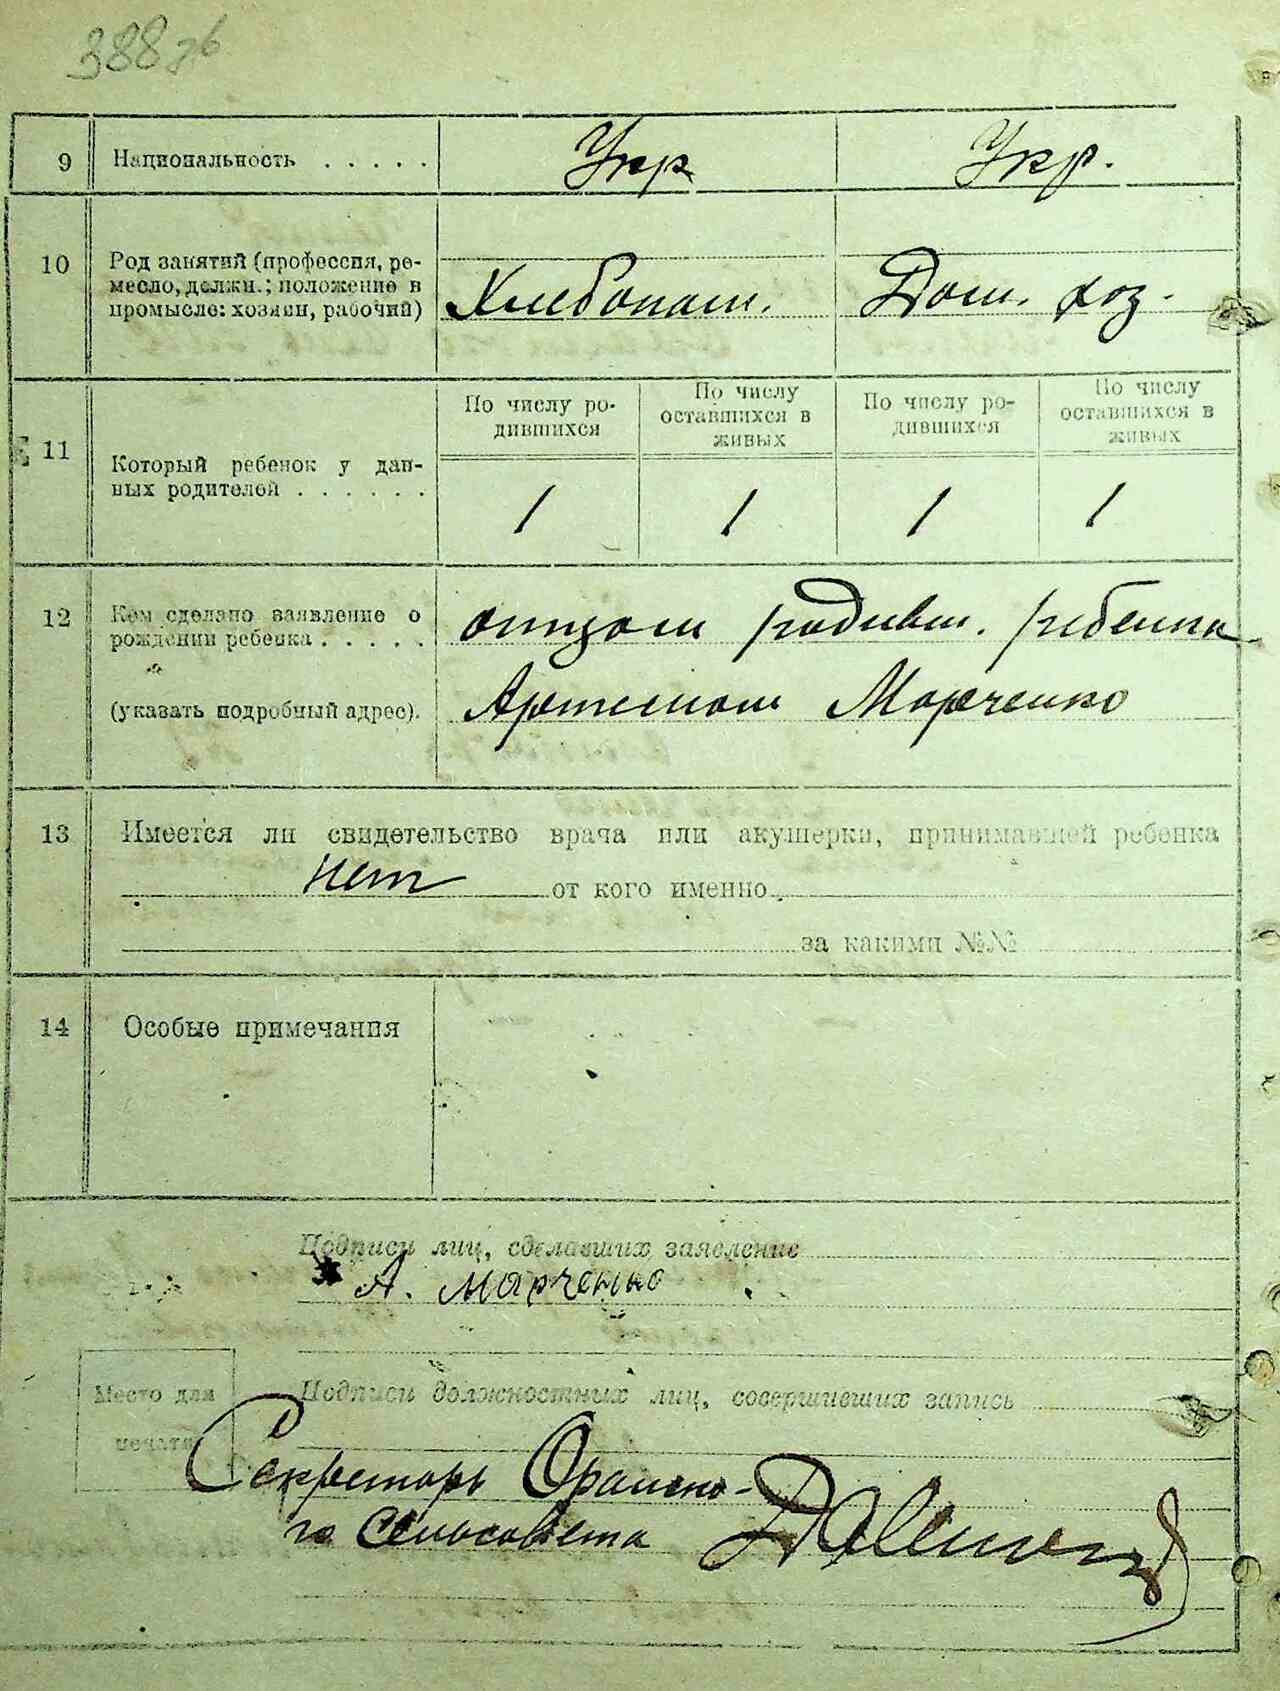 388 зб
9 Национальность . . . . . Укр Укр.
10 Род занятий (профессия, ре-
месло, должн.; положение в
промысле: хозяин, рабочий) Хлебопаш. Дом. хоз.
11 Который ребенок у дан-
ных родителей . . . . . .
По числу ро-
дившихся
По числу
оставшихся в
живых
По числу ро-
дившихся
По числу
оставшихся в
живых
1 1 1 1
12 Кем сделано заявление о
рождении ребенка . . . . .
(указать подробный адрес).
отцом родивш. ребенка
Артемом Марченко
13 Имеется ли свидетельство врача или акушерки, принимавшей ребенка
нет от кого именно
за какими №№
14 Особые примечания
Подписи лиц, сделавших заявление
А. Марченко
Место для
печати
Подписи должностных лиц, совершивших запись
Секретарь
го Сельсовета